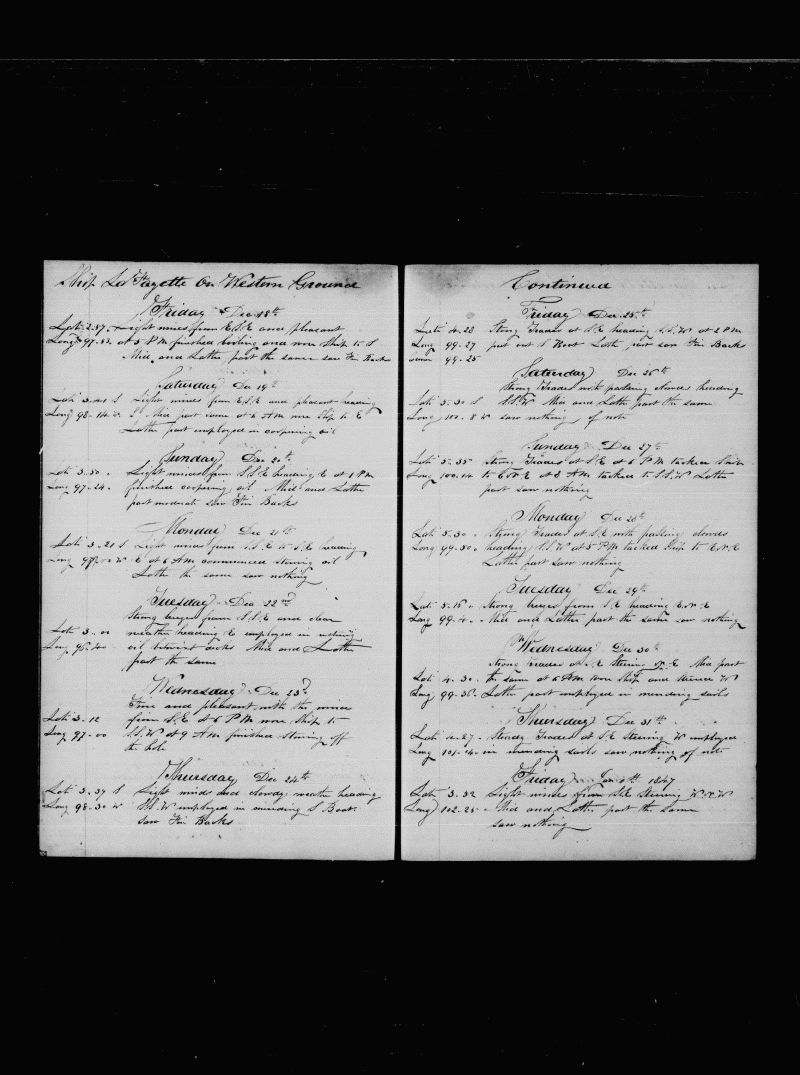 Ship La Fayette On Western Ground
Friday Dec 18th
Lati 2.57 Light winds from E.S.E and pleasant
Long 97.53 at 5 P M finished boiling and wore Ship to S
Mid and Latter part the same saw Fin Backs
Saturday Dec 19th
Lati 3.41 S Light winds from E.S.E and pleasant heading
Long 98-14 W S. Mid part same at 6 A M wore Ship to E
Latter part employed in coopering oil
Sunday Dec 20th
Lati 3.50 Light winds from S.S.E heading E at 1 P M
Long 97-24 finished coopering oil Mid and Latter
part moderate saw Fin Backs
Monday Dec 21st
Lati 3-21 S Light winds from S.S.E to S.E heading
Long W E at 6 A M commenced stowing oil
Latter the same saw nothing
Tuesday Dec 22nd
Strong breezes from S.S.E and clear
Lati 3.00 weather heading E employed in stowing
Long oil between decks Mid and Latter
part the same
Wednesday Dec 23d
Fine and pleasant with the wind
Lati 3.12 from S.E at 6 P M wore Ship to
Long 97-00 S.S.W at 9 A M finished stowing off
the hole
Thursday Dec 24th
Lati 3.37 S Light winds and cloudy weather heading
Long 98-30 W S.S.W employed in mending S Boat
saw Fin Backs
Continued
Friday Dec 25th
Lati 4.28 Strong Trades at S.E heading S.S.W at 2 P M
Long 99-27 put out 1 Boat Latter part saw Fin Backs
99-25
Saturday Dec 26th
Strong Trades with passing clouds heading
Lati 5.30 S S.S.W Mid and Latter part the same
Long 100.8 W saw nothing of note
Sunday Dec 27th
Lati 5.35 Strong Trades at S.E at 6 P M tacked Ship
Long 100.14 to E.N.E at 8 A M tacked to S.S.W Latter
part saw nothing
Monday Dec 28th
Lati 5.30 Strong Trades at S.E with passing clouds
Long 99.30 heading S.S.W at 5 P M tacked Ship to E.N.E
Latter part saw nothing
Tuesday Dec 29th
Lati 5.15 Strong breezes from S.E heading E.N.E
Long 99.4 Mid and Latter part the same saw nothing
Wednesday Dec 30th
Strong Trades at S.E Steering N.E Mid part
Lati 4.30 the same at 6 A M wore Ship and steered W
Long 99.36 Latter part employed in mending sails
Thursday Dec 31st
Lati 4.27 Steady Trades at S.E Steering W employed
Long 101.14 in mending sails saw nothing of note
Friday Jan 1st 1847
Lati 3.32 Light winds from S.E Steering W.N.W
Long 102.25 Mid and Latter part the same
saw nothing